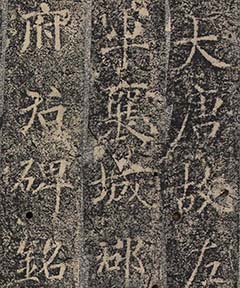 大唐故左
軍襄城郡
府君碑銘